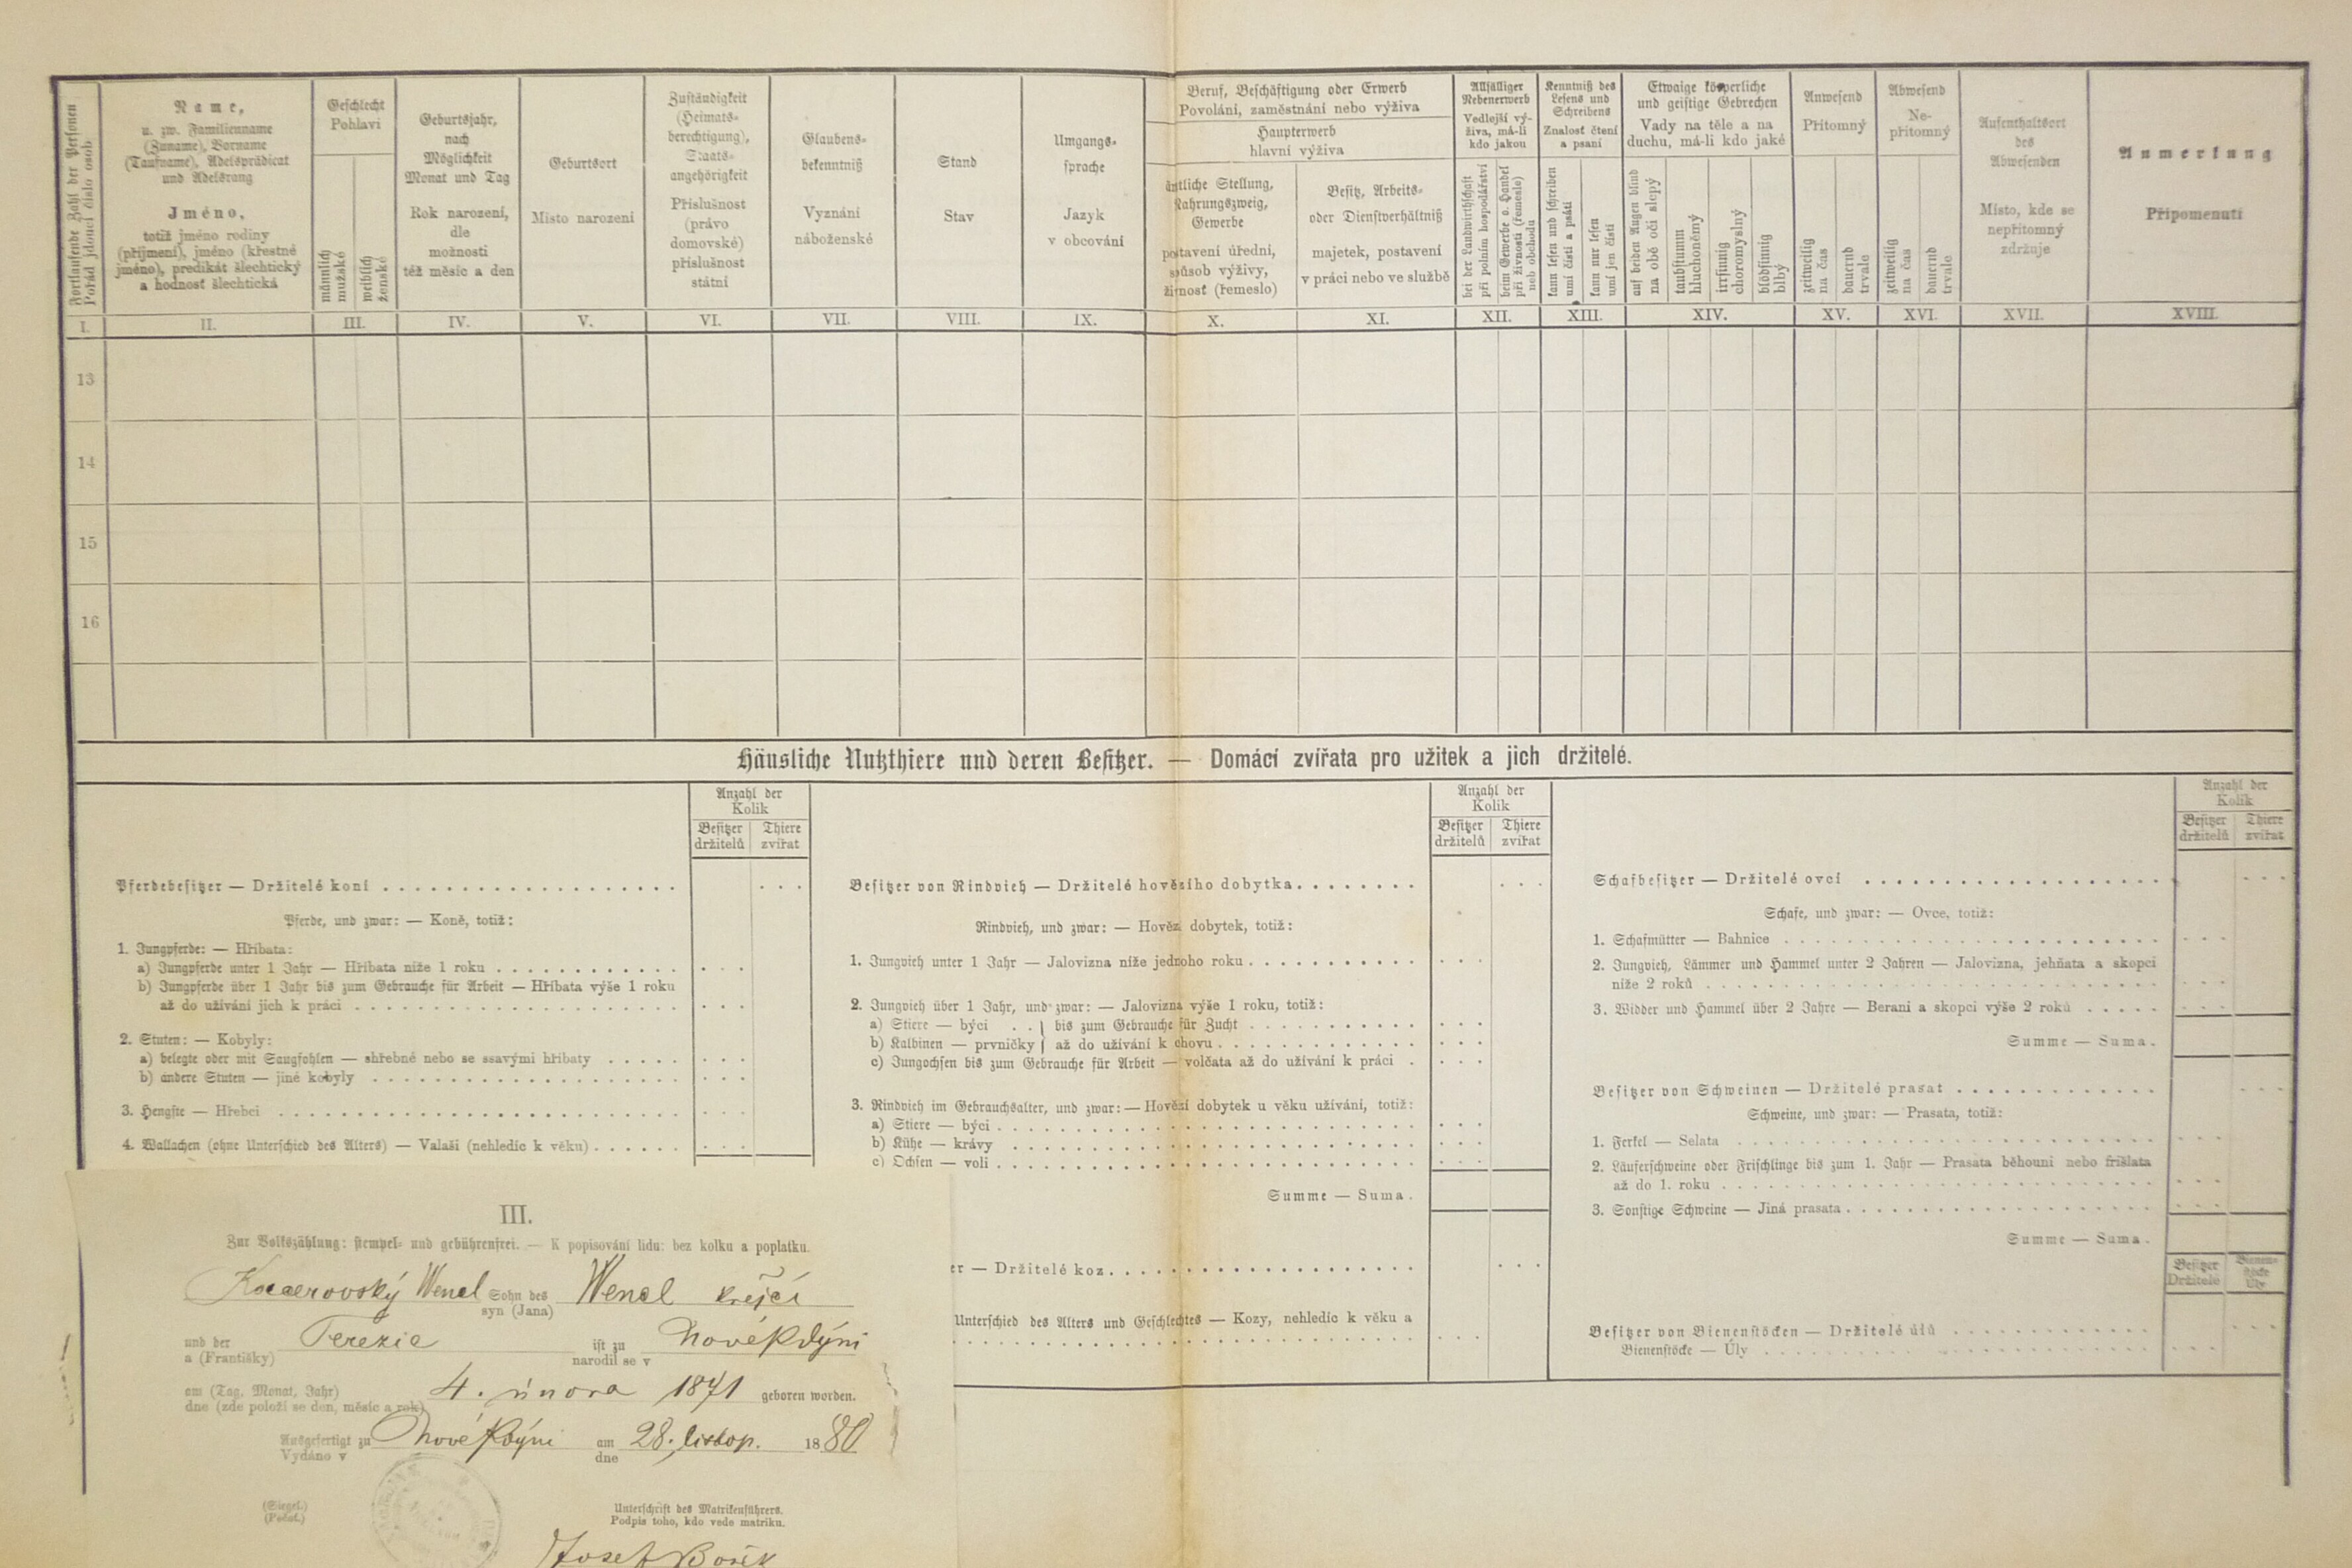 Fortlaufende Zahl der Personen
Pořád jdoucí číslo osob
Name,
u. zw. Familienname
(Zuname), Vorname
(Taufname), Adelsprädicat
und Adelsrang
Jméno,
totiž jméno rodiny
(příjmení), jméno (křestné
jméno), predikát šlechtický
a hodnosť šlechtická
Geschlecht
Pohlaví
männlich
mužské
weiblich
ženské
Geburtsjahr,
nach
Möglichkeit
Monat und Tag
Rok narození,
dle
možnosti
též měsíc a den
Geburtsort
Místo narození
Zuständigkeit
(Heimats-
berechtigung),
Staats-
angehörigkeit
Příslušnost
(právo
domovské)
příslušnost
státní
Glaubens-
bekenntniß
Vyznání
náboženské
Stand
Stav
Umgangs-
sprache
Jazyk
v obcování
Beruf, Beschäftigung oder Erwerb
Povolání, zaměstnání nebo výživa
Haupterwerb
hlavní výživa
ämtliche Stellung,
Nahrungszweig,
Gewerbe
postavení úřední,
způsob výživy,
živnosť (řemeslo)
Besitz, Arbeits-
oder Dienstverhältniß
majetek, postavení
v práci nebo ve službě
Allfälliger
Nebenerwerb
Vedlejší vý-
živa, má-li
kdo jakou
bei der Landwirthschaft
při polním hospodářství
beim Gewerbe o. Handel
při živnosti (řemeslo)
neb obchodu
Kenntniß des
Lesens und
Schreibens
Znalost čtení
a psaní
kann lesen und schreiben
umí čísti a psáti
kann nur lesen
umí jen čísti
Etwaige körperliche
und geistige Gebrechen
Vady na těle a na
duchu, má-li kdo jaké
auf beiden Augen blind
na obě oči slepý
taubstumm
hluchoněmý
irrsinnig
choromyslný
blödsinnig
blbý
Anwesend
Přítomný
zeitweilig
na čas
dauernd
trvale
Abwesend
Ne-
přítomný
zeitweilig
na čas
dauernd
trvale
Aufenthaltsort
des
Abwesenden
Místo, kde se
nepřítomný
zdržuje
Anmerkung
Připomenutí
I. II. III. IV. V. VI. VII. VIII. IX. X. XI. XII. XIII. XIV. XV. XVI. XVII. XVIII.
13
14
15
16
Häusliche Nutzthiere und deren Besitzer. — Domácí zvířata pro užitek a jich držitelé.
Anzahl der
Kolik
Besitzer
držitelů
Thiere
zvířat
Pferdebesitzer — Držitelé koní
Pferde, und zwar: — Koně, totiž:
1. Jungpferde: — Hříbata:
a) Jungpferde unter 1 Jahr — Hříbata níže 1 roku
b) Jungpferde über 1 Jahr bis zum Gebrauche für Arbeit — Hříbata výše 1 roku
až do užívání jich k práci
2. Stuten: — Kobyly:
a) belegte oder mit Saugfohlen — shřebné nebo se ssavými hříbaty
b) andere Stuten — jiné kobyly
3. Hengste — Hřebci
4. Wallachen (ohne Unterschied des Alters) — Valaši (nehledíc k věku)
Anzahl der
Kolik
Besitzer
držitelů
Thiere
zvířat
Besitzer von Rindvieh — Držitelé hovězího dobytka
Rindvieh, und zwar: — Hovězí dobytek, totiž:
1. Jungvieh unter 1 Jahr — Jalovizna níže jednoho roku
2. Jungvieh über 1 Jahr, und zwar: — Jalovizna výše 1 roku, totiž:
a) Stiere — býci . . } bis zum Gebrauche für Zucht
b) Kalbinen — prvničky } až do užívání k chovu
c) Jungochsen bis zum Gebrauche für Arbeit — volčata až do užívání k práci
3. Rindvieh im Gebrauchsalter, und zwar: — Hovězí dobytek u věku užívání, totiž:
a) Stiere — býci
b) Kühe — krávy
c) Ochsen — voli
Summe — Suma.
er — Držitelé koz
Unterschied des Alters und Geschlechtes — Kozy, nehledíc k věku a
Anzahl der
Kolik
Besitzer
držitelů
Thiere
zvířat
Schafbesitzer — Držitelé ovcí
Schafe, und zwar: — Ovce, totiž:
1. Schafmütter — Bahnice
2. Jungvieh, Lämmer und Hammel unter 2 Jahren — Jalovizna, jehňata a skopci
níže 2 roků
3. Widder und Hammel über 2 Jahre — Berani a skopci výše 2 roků
Summe — Suma.
Besitzer von Schweinen — Držitelé prasat
Schweine, und zwar: — Prasata, totiž:
1. Ferkel — Selata
2. Läuferschweine oder Frischlinge bis zum 1. Jahr — Prasata běhouni nebo frišlata
až do 1. roku
3. Sonstige Schweine — Jiná prasata
Summe — Suma.
Besitzer
Držitelé
Bienen-
stöcke
Úly
Besitzer von Bienenstöcken — Držitelé úlů
Bienenstöcke — Úly
III.
Zur Volkszählung: stempel- und gebührenfrei. — K popisování lidu: bez kolku a poplatku.
Wencl Sohn des Wencl krejčí
syn (Jana)
und der Terezie ist zu Nové Kdýni
a (Františky) narodil se v
am (Tag, Monat, Jahr) 4. února 1871 geboren worden.
dne (zde položí se den, měsíc a rok)
Ausgefertigt zu Nové Kdýni am 28. listop. 1880
Vydáno v dne
(Siegel.)
(Pečeť.)
Unterschrift des Matrikenführers.
Podpis toho, kdo vede matriku.
Josef